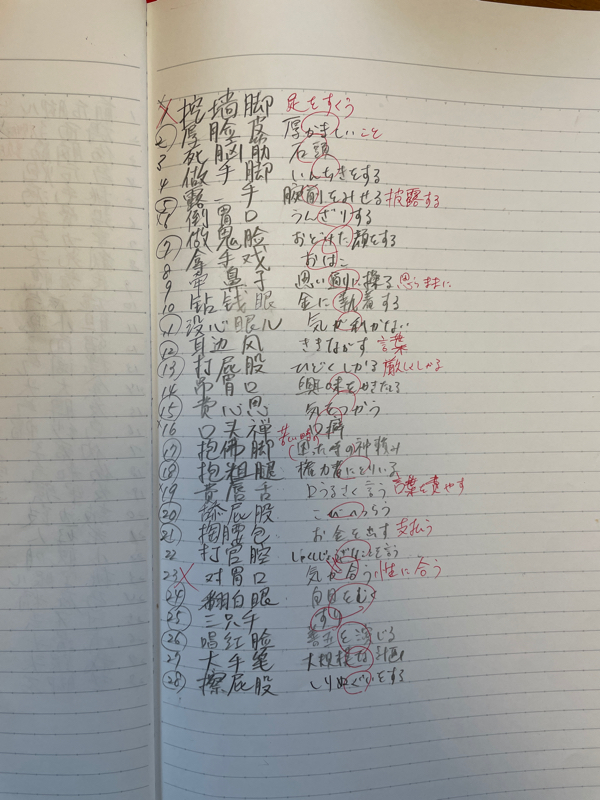 1 挖墙脚 足をすくう
2 厚脸皮 厚かましいこと
3 死脑筋 石頭
4 做手脚 いんちきをする
5 露一手 腕前をみせる 披露する
6 倒胃口 うんざりする
7 做鬼脸 おどけた顔をする
8 拿手戏 おはこ
9 牵鼻子 思い通りに操る 思うままに
10 钻钱眼 金に執着する
11 没心眼儿 気が利かない
12 耳边风 ききながす 言葉
13 打屁股 ひどくしかる 厳しくしかる
14 吊胃口 興味をかきたてる
15 费心思 気をつかう
16 口头禅 口癖
17 抱佛脚 困った時の神頼み 苦しい時の
18 抱粗腿 権力者にとりいる
19 费唇舌 口うるさく言う 言葉を費やす
20 舔屁股 こびへつらう
21 掏腰包 お金を出す 支払う
22 打官腔
23 对胃口 気が合う 性に合う
24 翻白眼 白目をむく
25 三只手 すり
26 唱红脸 善玉を演じる
27 大手笔 大規模な計画
28 擦屁股 しりぬぐいをする